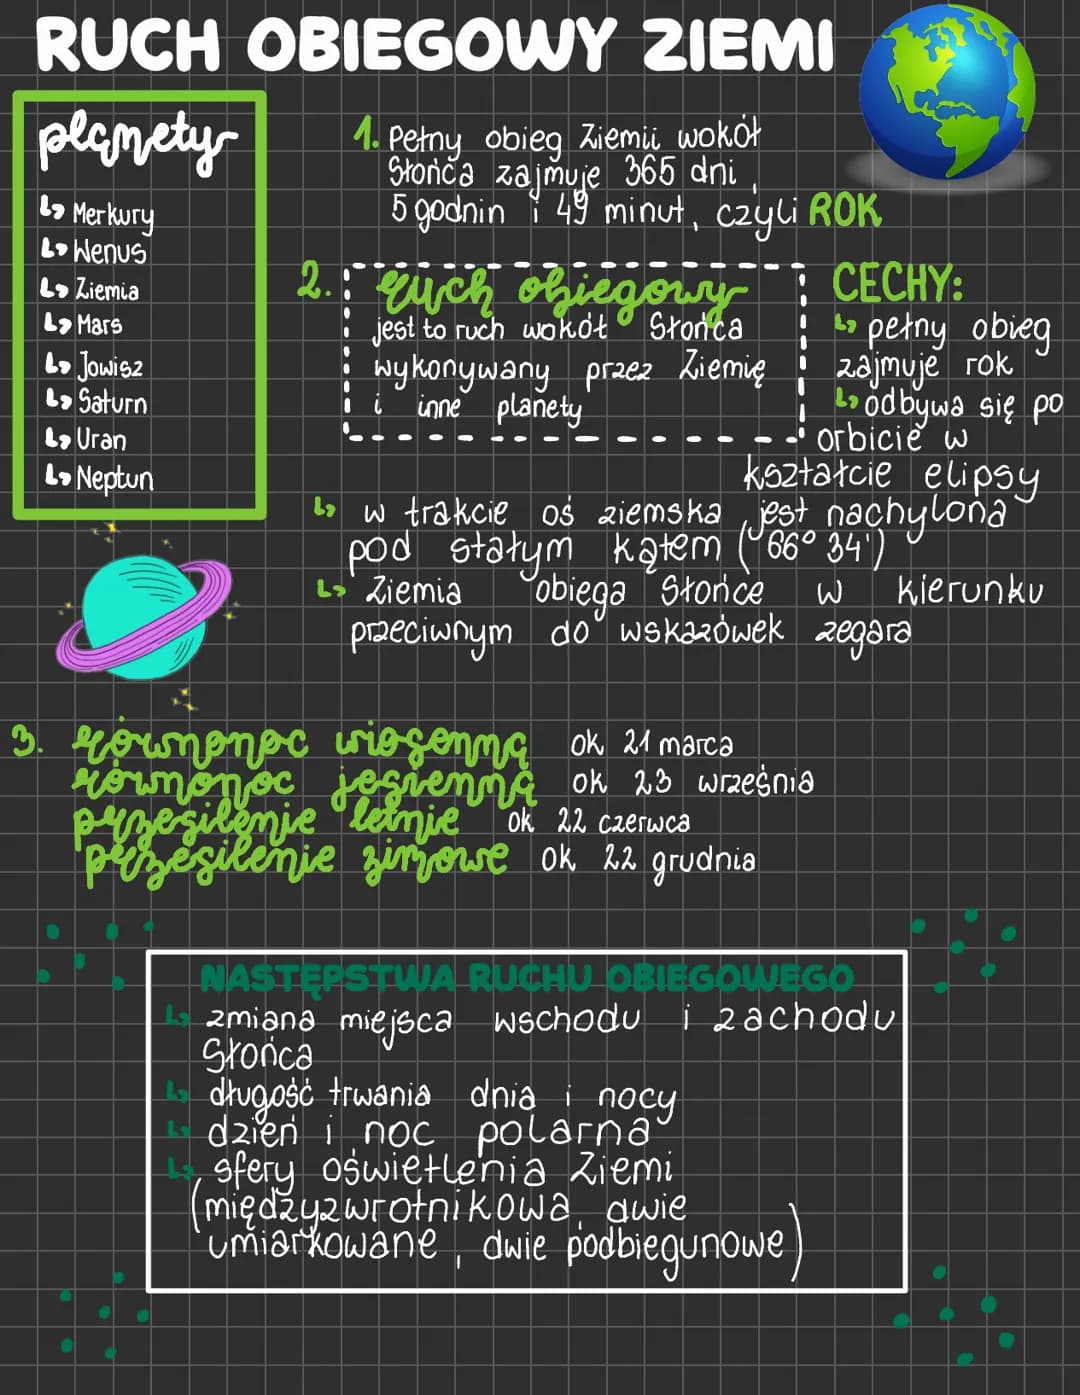 RUCH OBIEGOWY ZIEMI
planety
Merkury
Wenus
Ziemia
Mars
Jowisz
Saturn
Uran
Neptun
1. Pełny obieg Ziemii wokół
Słońca zajmuje 365 dni,
5 godnin i 49 minut, czyli ROK
2. ruch obiegowy
jest to ruch wokół Słońca
wykonywany przez Ziemię
i inne planety
CECHY:
pełny obieg
zajmuje rok
odbywa się po
orbicie w
kształcie elipsy
w trakcie oś ziemska jest nachylona
pod stałym kątem (66° 34')
Ziemia obiega Słońce w kierunku
przeciwnym do wskazówek zegara
3. równonoc wiosenna ok 21 marca
równonoc jesienna ok 23 września
przesilenie letnie ok 22 czerwca
przesilenie zimowe ok 22 grudnia
NASTĘPSTWA RUCHU OBIEGOWEGO
zmiana miejsca wschodu i zachodu
Słońca
długość trwania dnia i nocy
dzień i noc polarna
sfery oświetlenia Ziemi
(międzyzwrotnikowa, dwie
umiarkowane, dwie podbiegunowe)